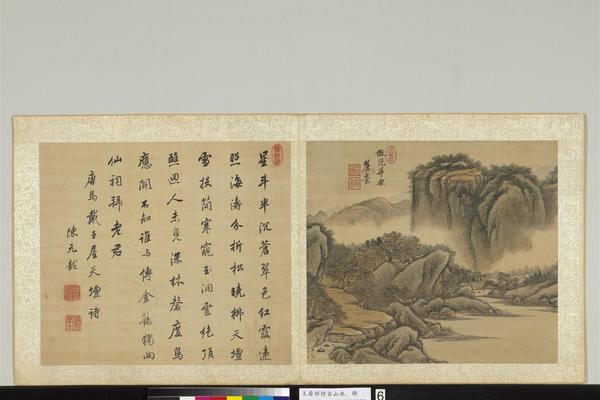 星斗半沉蒼翠色紅霞遠
照海濤分折松曉拂天壇
雪投簡寒窺玉洞雲絕頂
醮迴人未見深林磬度鳥
應聞不知誰與傳金籙獨向
仙祠拜老君
唐馬戴王屋天壇詩
陳元龍
倣范華原
麓臺
王原祁仿古山水 冊
6